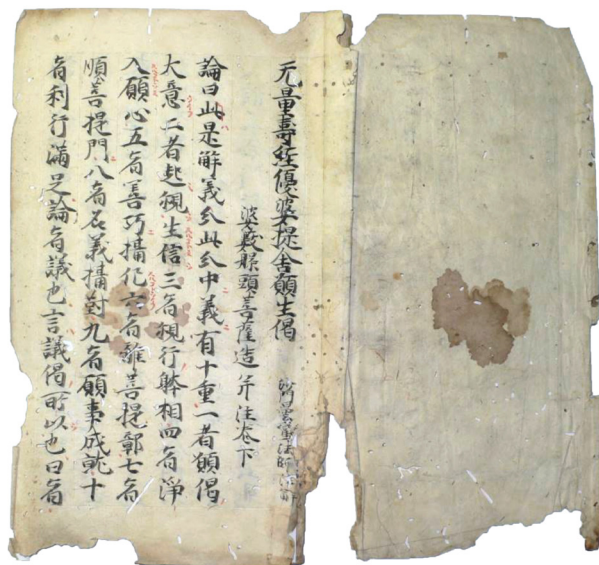 无量壽經優婆提舍願生偈
婆藪槃頭菩薩造并注卷下
沙門曇鸞法師注解
論曰此是解義分此分中義有十重一者願偈
大意二者起觀生信三者觀行躰相四者淨
入願心五者善巧攝化六者離菩提鄣七者
順菩提門八者名義攝對九者願事成就十
者利行滿足論者議也言議偈所以也曰者